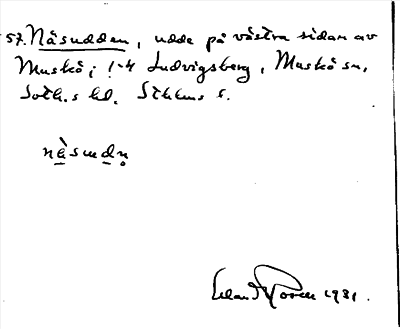 57. Näsudden, udde på västra sidan av
Muskö; 1-4 Ludvigsberg, Muskö sn,
Soth.s hd. Sthlms l.
nä̀sudn̥
1931.